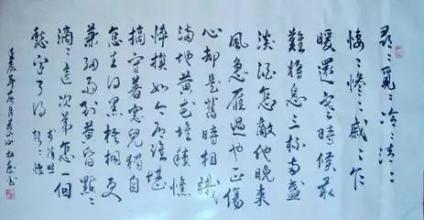 尋〻覓〻冷〻清〻
悽〻慘〻戚〻乍
暖還寒時候最
難將息三杯兩盞
淡酒怎敵他晚來
風急雁過也正傷
心却是舊時相識
滿地黃花堆積憔
悴損如今有誰堪
摘守着窗兒獨自
怎生得黑梧桐更
兼細雨到黃昏點〻
滴〻這次第怎一個
愁字了得
李清照
壬辰年 月 書